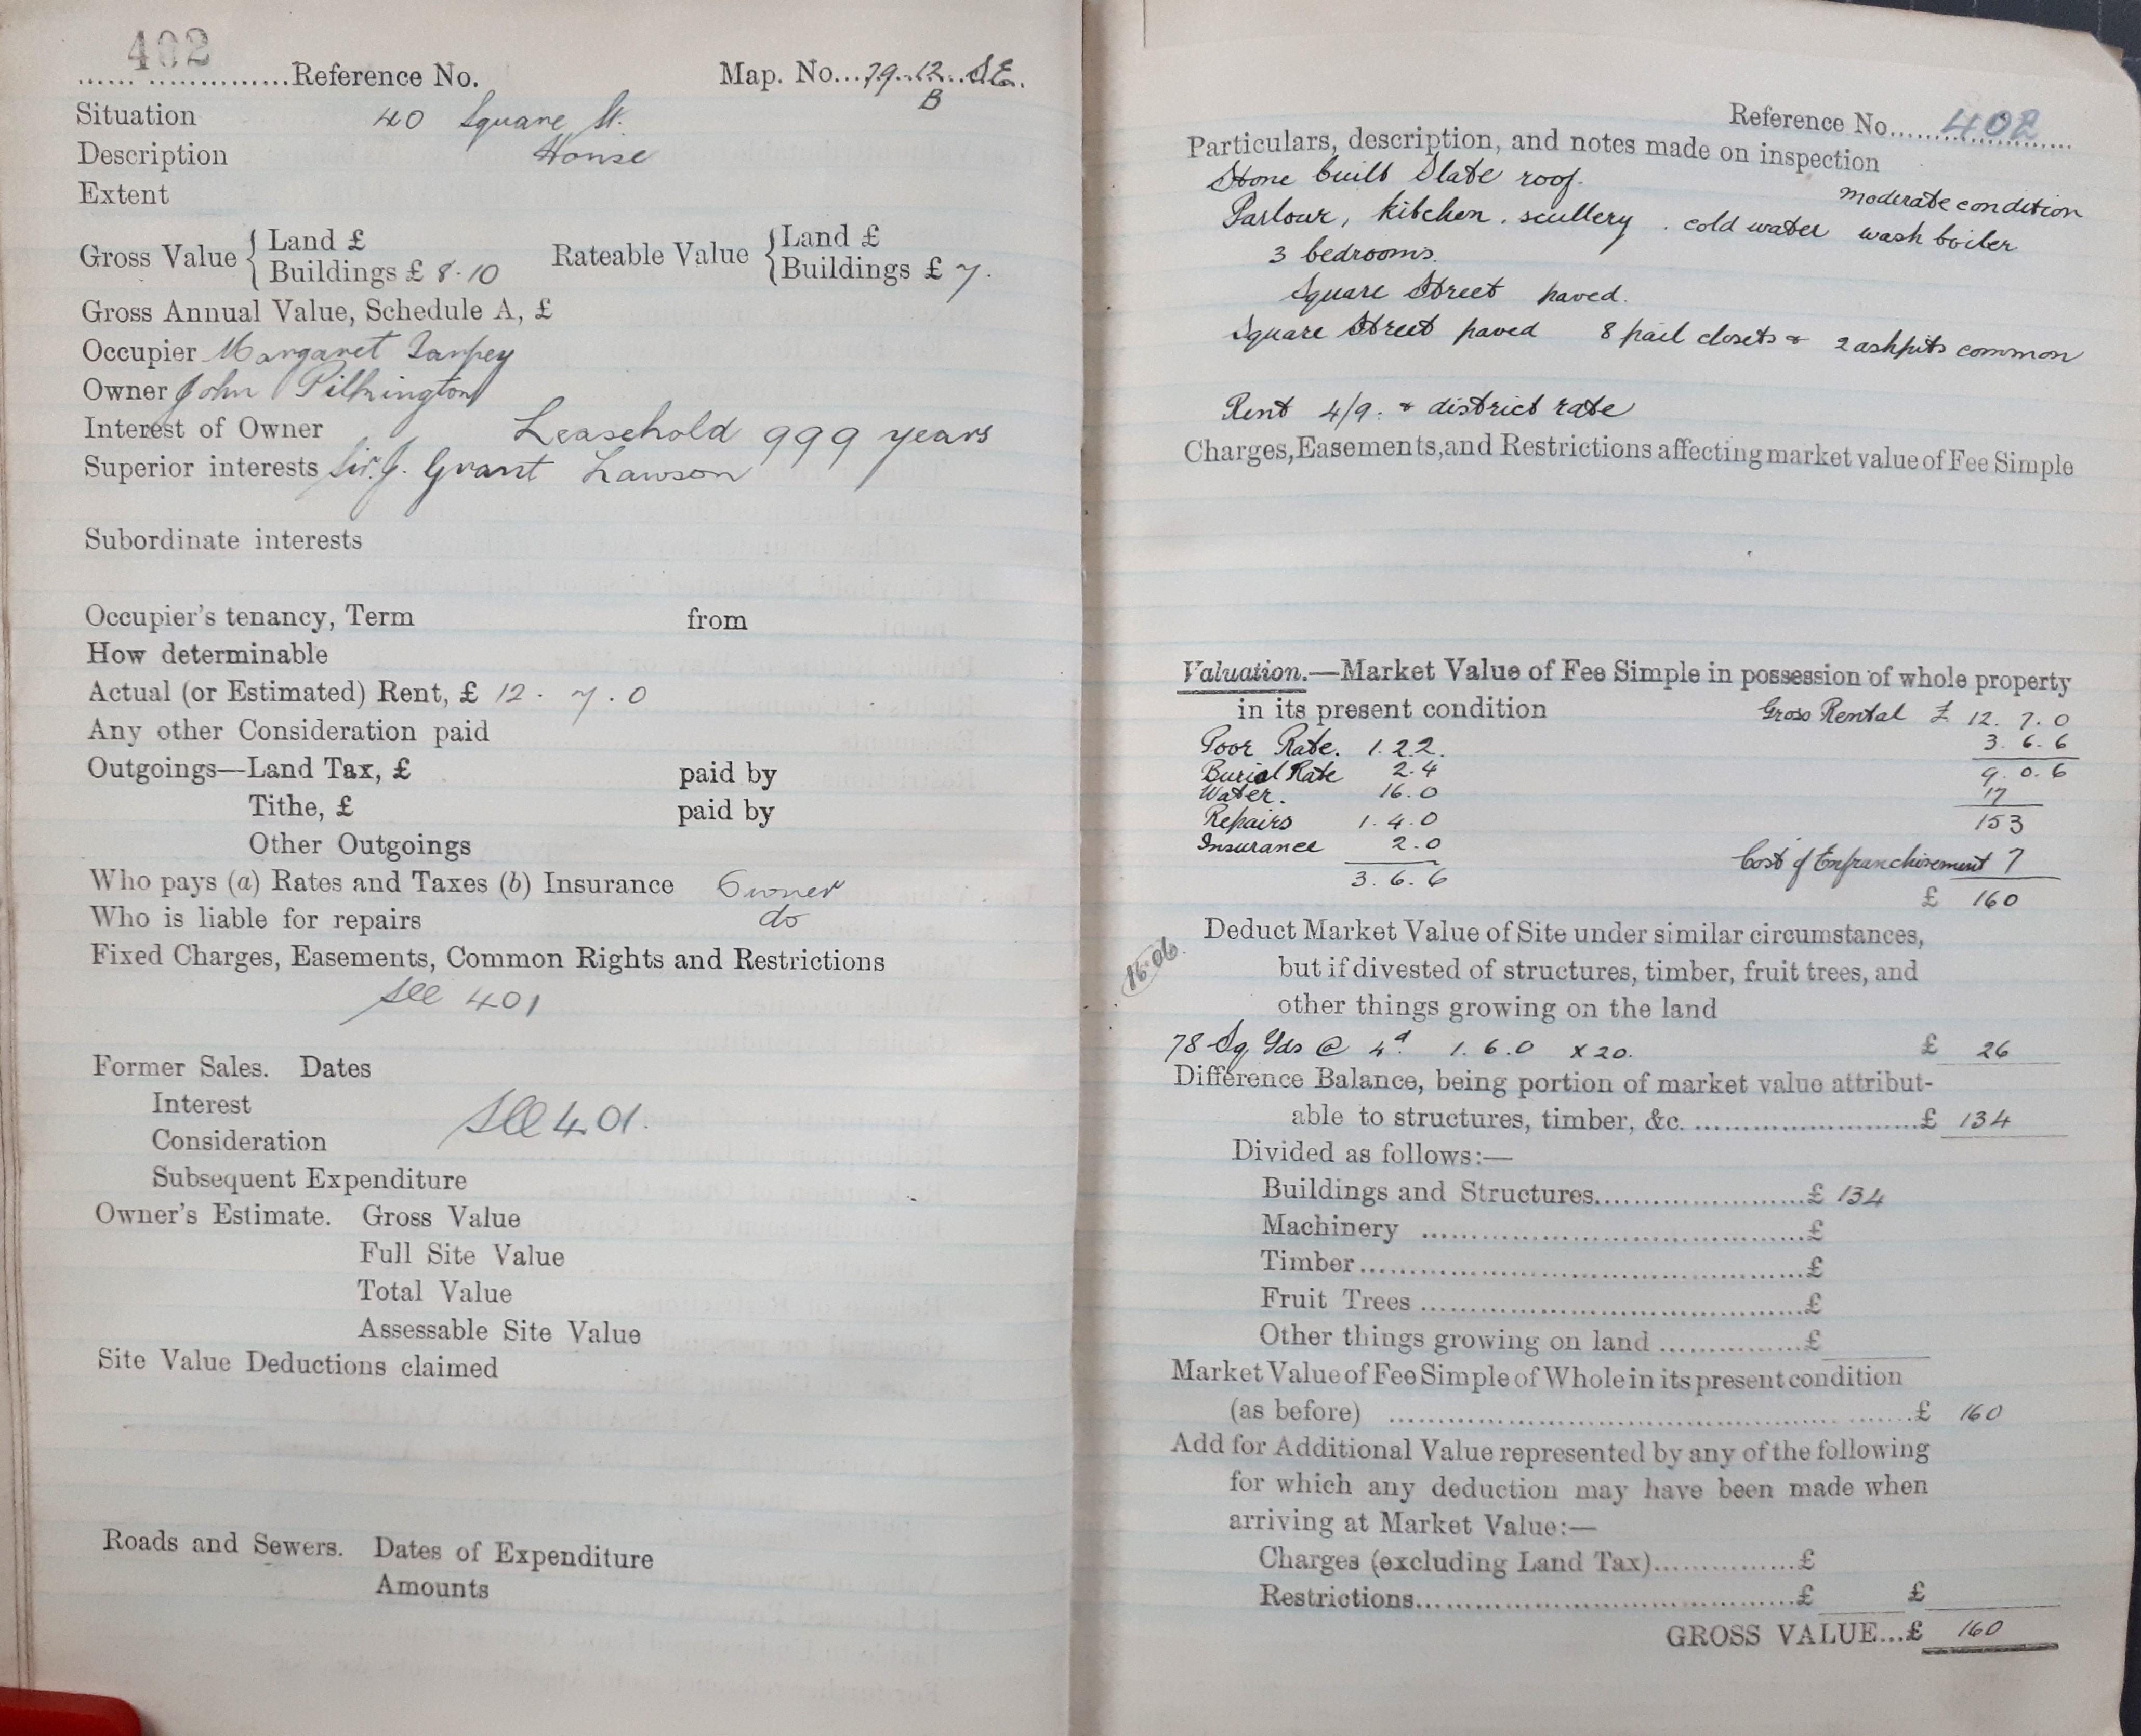 402
Reference No. Map. No... 79..12..S.E.
B
Situation 40 Square St.
Description House
Extent
Gross Value { Land £
Buildings £ 8.10
Rateable Value { Land £
Buildings £ 7.
Gross Annual Value, Schedule A, £
Occupier Margaret Tarpey
Owner John Pilkington
Interest of Owner Leasehold 999 years
Superior interests Sir. J. Grant Lawson
Subordinate interests
Occupier's tenancy, Term from
How determinable
Actual (or Estimated) Rent, £ 12. 7. 0
Any other Consideration paid
Outgoings—Land Tax, £ paid by
Tithe, £ paid by
Other Outgoings
Who pays (a) Rates and Taxes (b) Insurance Owner
Who is liable for repairs do
Fixed Charges, Easements, Common Rights and Restrictions
See 401
Former Sales. Dates
Interest
See 401.
Consideration
Subsequent Expenditure
Owner's Estimate. Gross Value
Full Site Value
Total Value
Assessable Site Value
Site Value Deductions claimed
Roads and Sewers. Dates of Expenditure
Amounts
Reference No...... 402
Particulars, description, and notes made on inspection
Stone built Slate roof. moderate condition
Parlour, kitchen, scullery. cold water wash boiler
3 bedrooms.
Square Street paved.
Square Street paved 8 pail closets & 2 ashpits common
Rent 4/9. & district rate
Charges, Easements, and Restrictions affecting market value of Fee Simple
Valuation.—Market Value of Fee Simple in possession of whole property
in its present condition Gross Rental £ 12. 7. 0
Poor Rate. 1. 2 2. 3. 6. 6
Burial Rate 2. 4 9. 0. 6
Water. 16. 0 17
Repairs 1. 4. 0 153
Insurance 2. 0 Cost of Enfranchisement 7
3. 6. 6 £ 160
Deduct Market Value of Site under similar circumstances,
16.06
but if divested of structures, timber, fruit trees, and
other things growing on the land
78 Sq Yds @ 4d. 1. 6. 0 x 20. £ 26
Difference Balance, being portion of market value attribut-
able to structures, timber, &c. ........................£ 134
Divided as follows:—
Buildings and Structures......................£ 134
Machinery ......................................£
Timber..........................................£
Fruit Trees .....................................£
Other things growing on land ...............£
Market Value of Fee Simple of Whole in its present condition
(as before) ..................................................£ 160
Add for Additional Value represented by any of the following
for which any deduction may have been made when
arriving at Market Value:—
Charges (excluding Land Tax)..............£
Restrictions.......................................£ £
GROSS VALUE...£ 160